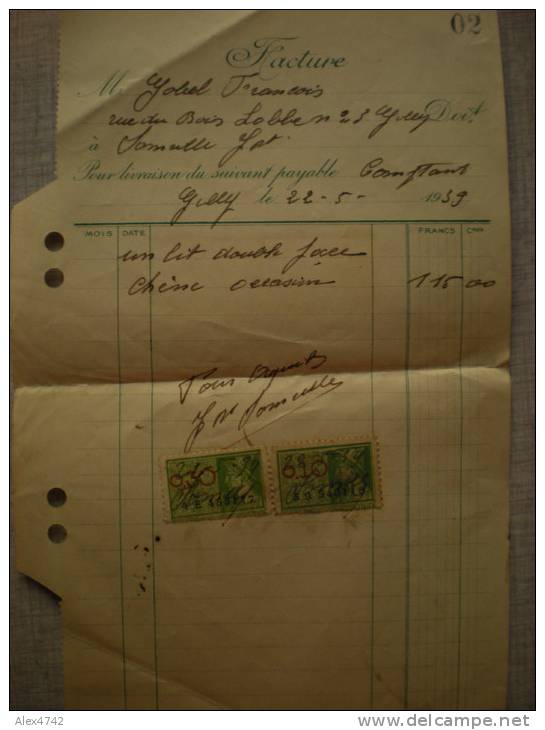 02
Facture
M Yobel Francois
rue du Bois Lobbe n 23 Gilly Doit
à Somville Jph
Pour livraison du suivant payable Comptant
Gilly le 22-5- 1939
MOIS DATE FRANCS Cmes
un lit double face
chêne occasion 115 00
Pour Acquit
Jph Somville
0,50 0,10
Alex4742
www.delcampe.net